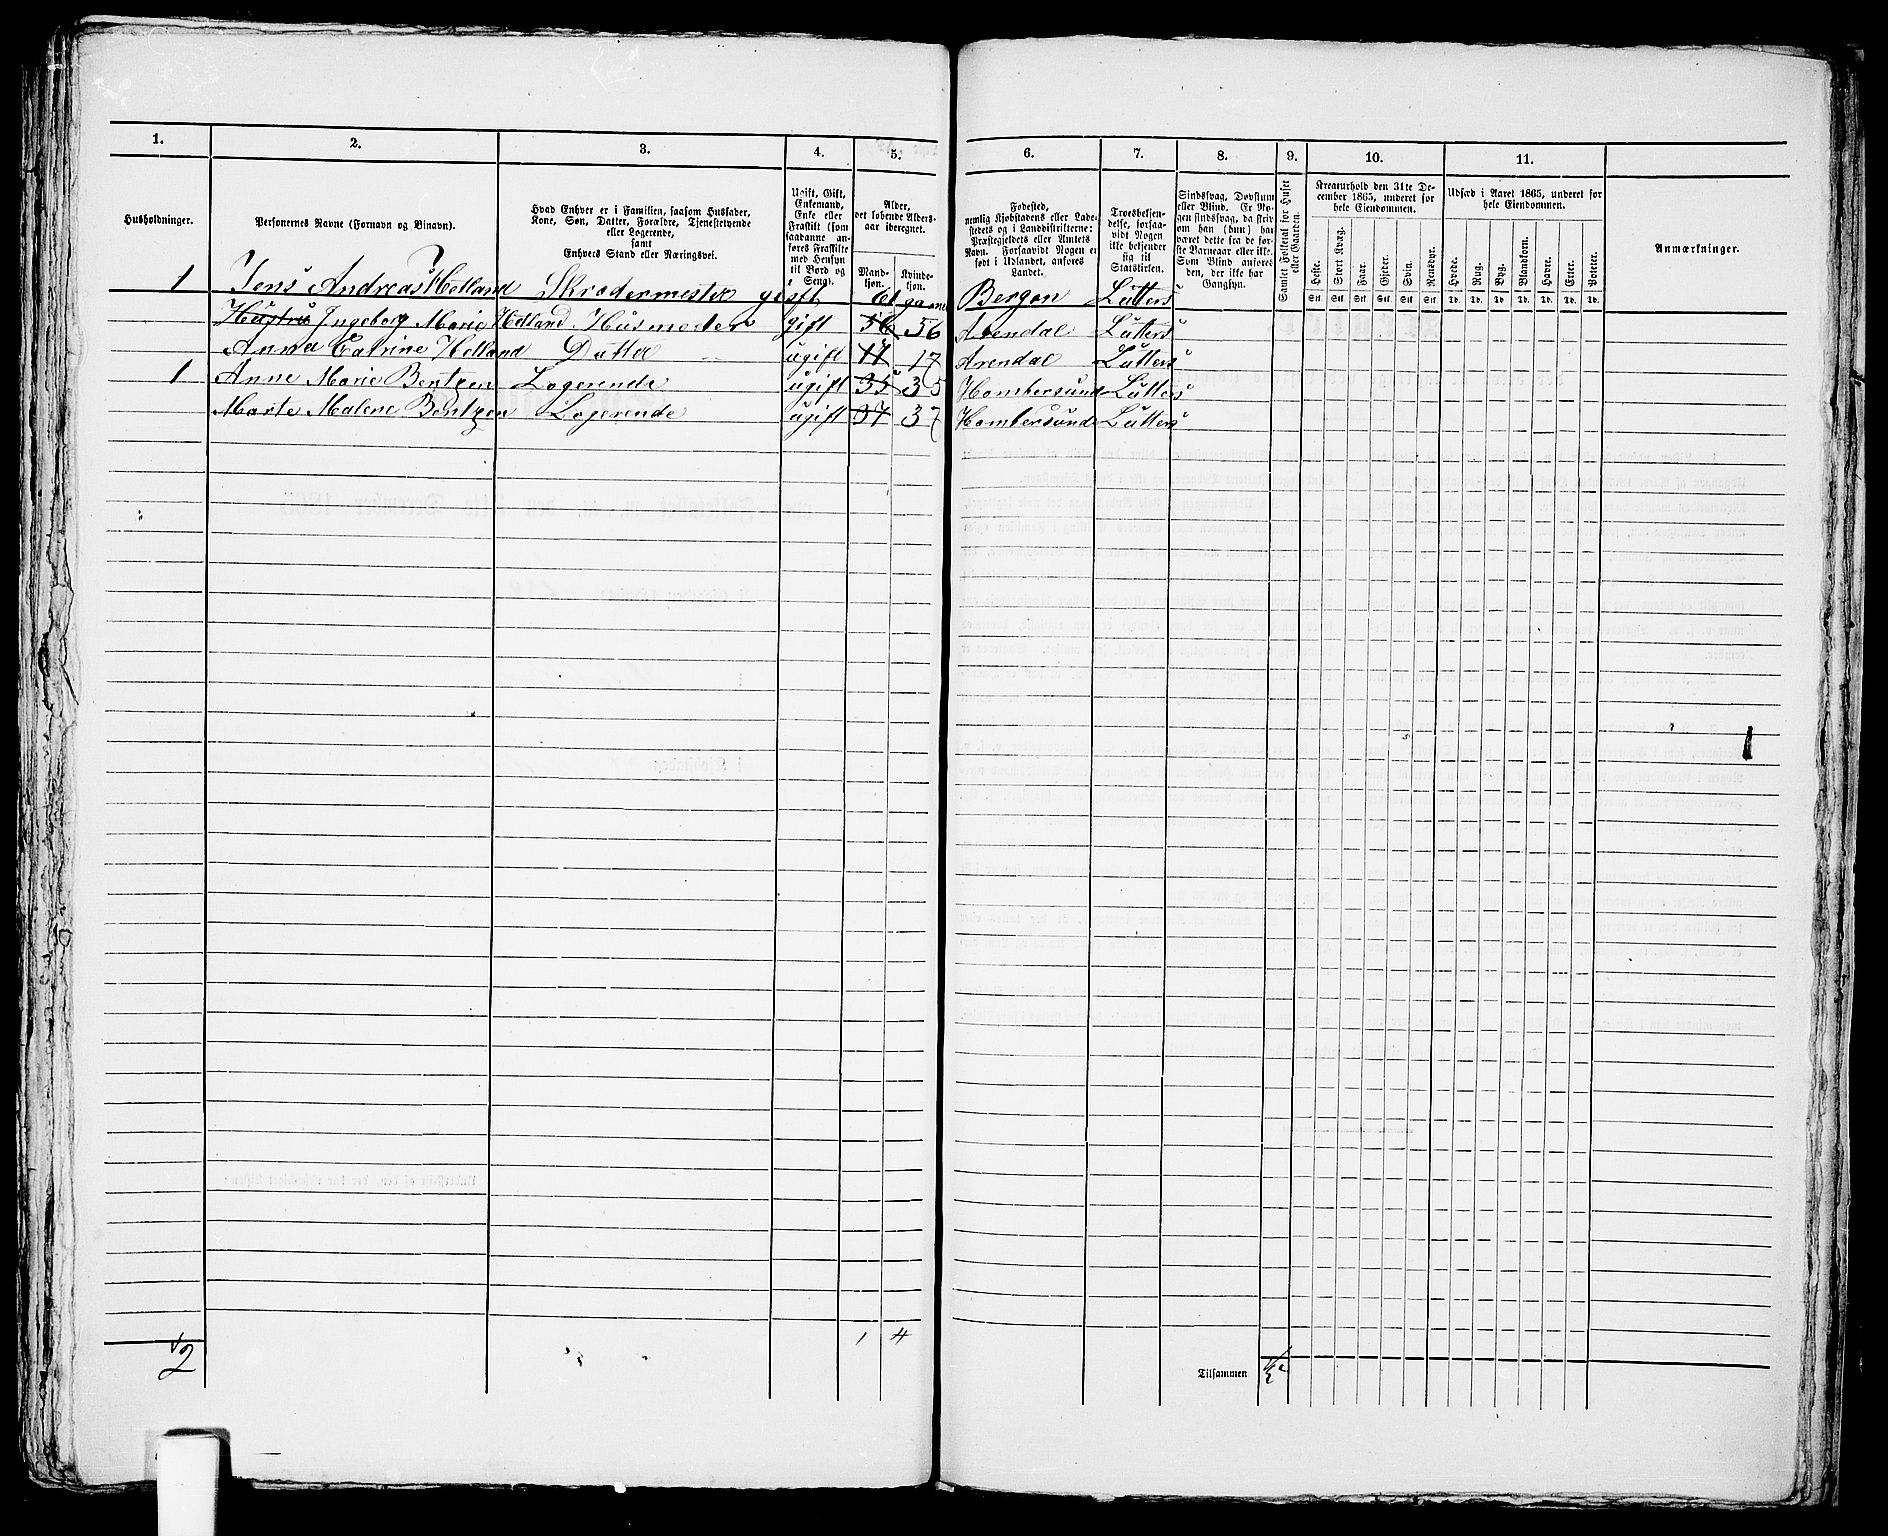 1. 2. 3. 4. 5. 6. 7. 8. 9. 10. 11.
Husholdninger.
Personernes Navne (Fornavn og Vinavn).
Hvad Enhver er i Familien, saasom Husfader,
Kone, Søn, Datter, Forældre, Tjenestetyende
eller Logerende,
samt
Enhvers Stand eller Næringsvei.
Ugift, Gift,
Enkemand,
Enke eller
Fraskilt (som
saadanne an-
føres Fraskilte
med Hensyn
til Bord og
Seng).
Alder,
det løbende Alders-
aar iberegnet.
Mand-
kjøn.
Kvinde-
kjøn.
Fødested,
nemlig Kjøbstadens eller Lade-
stedets og i Landdistrikterne:
Præstegjeldets eller Amtets
Navn. Forsaavidt Nogen er
født i Udlandet, anføres
Landet.
Troesbekjen-
delse, forsaa-
vidt Nogen
ikke bekjender
sig til
Statskirken.
Sindssvag, Døvstum
eller Blind. Er No-
gen sindssvag, da skriv
om han (hun) har
været dette fra de før-
ste Barneaar eller ikke.
Som Blind anføres
den, der ikke har
Gangsyn.
Samlet Folketal for Huset
eller Gaarden.
Kreaturhold den 31te De-
cember 1865, underet for
hele Eiendommen.
Heste. Stort Kvæg. Faar. Gjeder. Svin. Rensdyr.
Stk. Stk. Stk. Stk. Stk. Stk.
Udsæd i Aaret 1865, underet for
hele Eiendommen.
Hvede. Rug. Byg. Blandkorn. Havre. Erter. Poteter.
Td. Td. Td. Td. Td. Td. Td.
Anmærkninger.
1 Jens Andreas Helland Skrædermester gift 61 Bergen Lutters
Hustru Ingeborg Marie Helland Husmoder gift 56 56 Arendal Lutters
Anne Catrine Helland Datter ugift 17 17 Arendal Lutters
1 Anne Marie Bentzen Logerende ugift 35 35 Hombersund Lutters
Marte Malene Bentzen Logerende ugift 37 37 Hombersund Lutters
1
2 1 4
Tilsammen